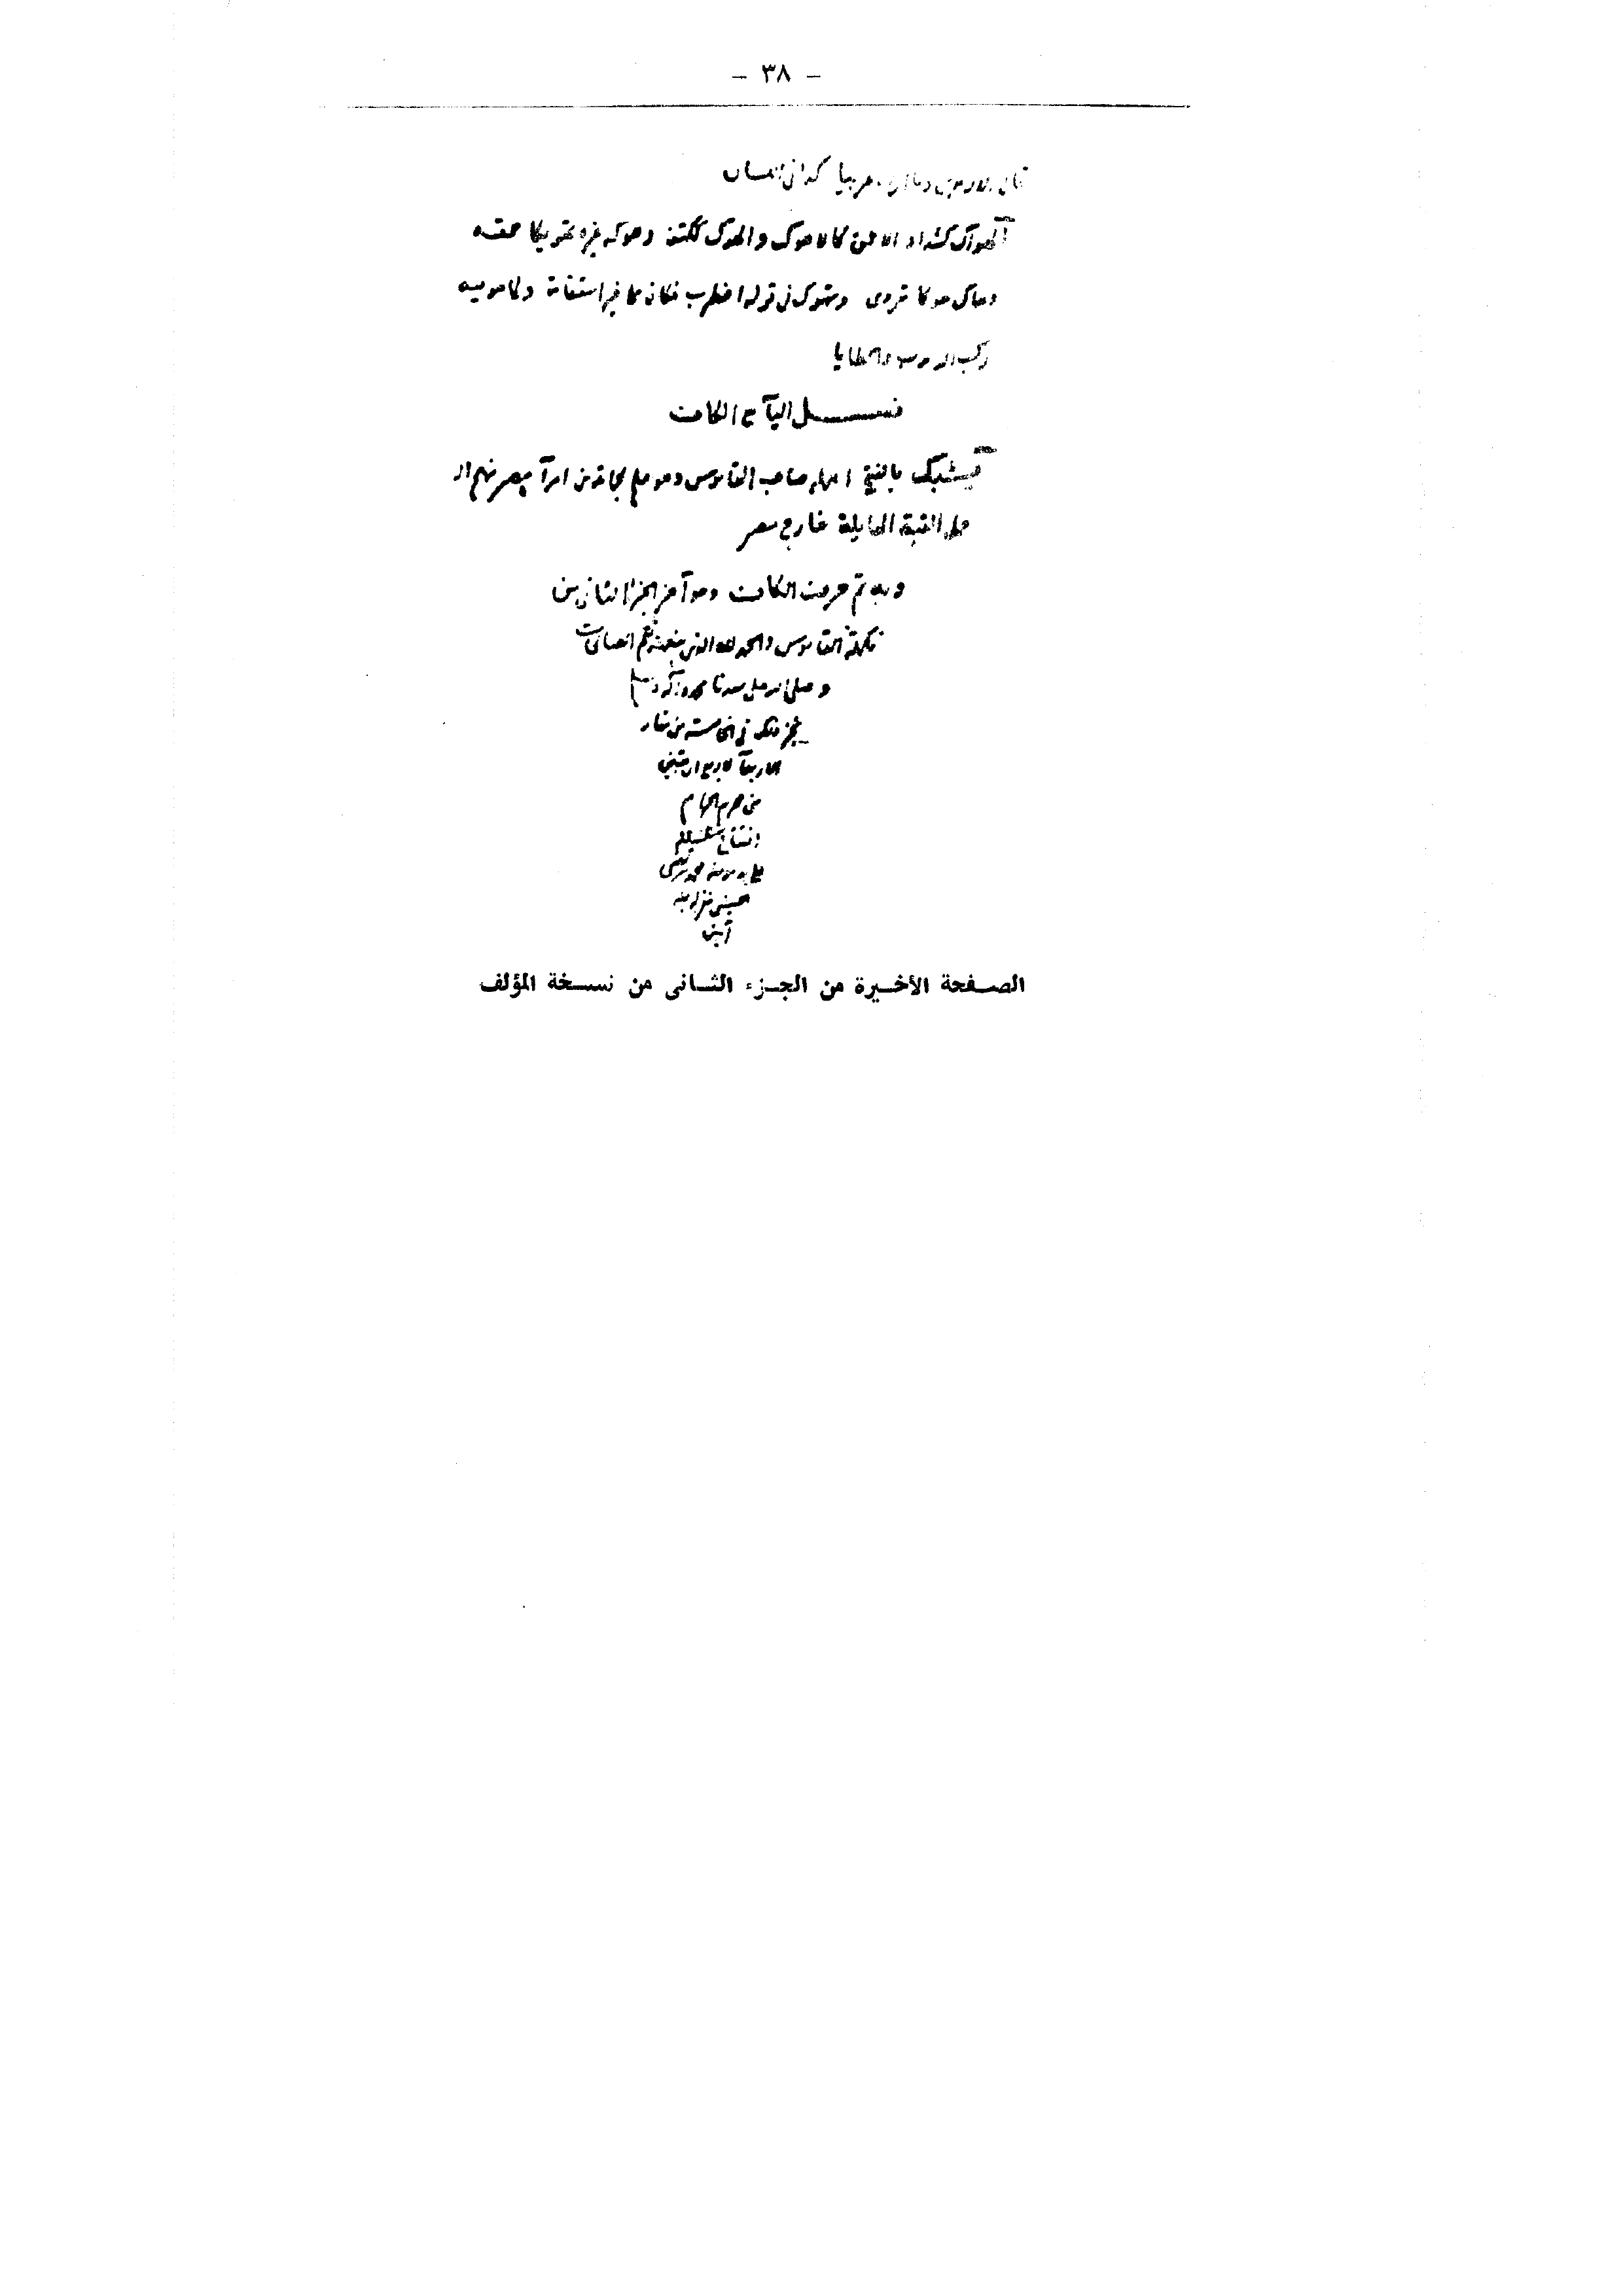 - ٣٨ -
قال الازهرى وما اراه عربيا كذا فى اللسان
الهواك كشداد الاحمق كالاهوك والهوك ككتف وهوكه غيره تهويكا حمقه
وهاك هوكا تردى وتهوك فى قوله اضطرب فكان على غير استقامة وفى امره
ركب الذنوب والخطايا
فصل اليآء مع الكاف
يشبك بالفتح اهمله صاحب القاموس وهو علم لجماعة من امرآء مصر منهم الذى
عمل القبة الهايلة خارج مصر
وبه تم حرف الكاف وهو آخر الجزء الثانى من
تكملة القاموس والحمد لله الذى بنعمته تتم الصالحات
وصلى الله على سيدنا محمد وآله وسلم
نجز ذلك فى الخامسة من نهار
الاربعآء لاربع ان بقين
من محرم الحرام
افتتاح
على يد مؤلفه محمد مرتضى
الحسينى غفر الله له بمنه
آمين
الصفحة الأخيرة من الجزء الثانى من نسخة المؤلف